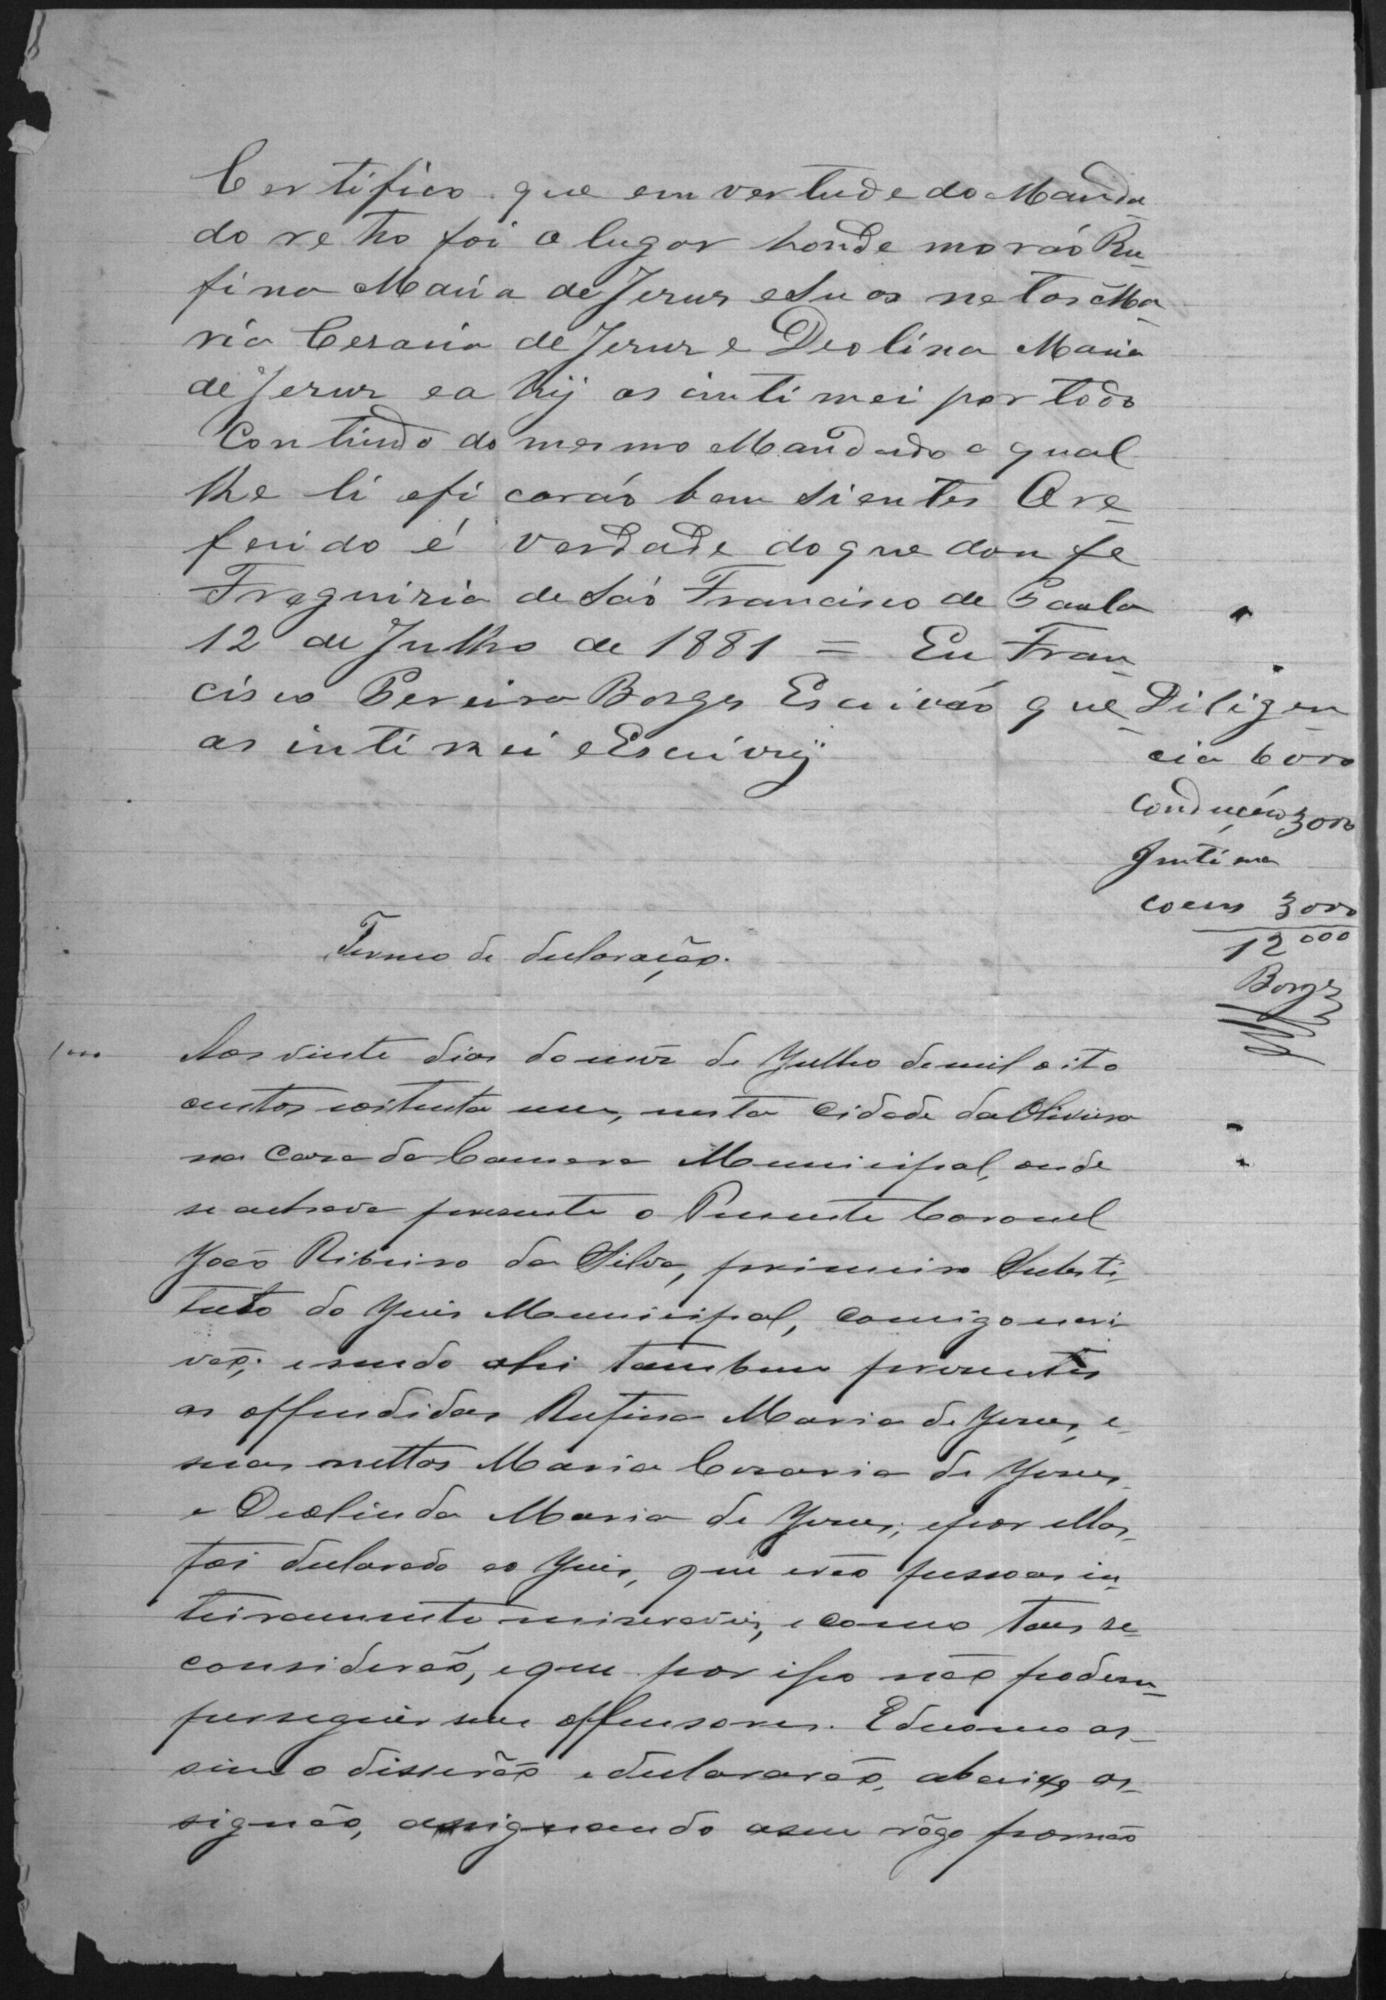 Certifico que em vertude do Manda
do retro foi o lugar honde moráo Ru-
fina Maria de Jesus e Suas netas Ma-
ria Cesaria de Jesus e Deolina Maria
de Jesus e a hij as intimei por todo
Contiudo do mesmo Mandado o qual
lhe li e ficaráo bem Sientes O re-
ferido é verdade do que dou fe
Freguizia de Sáo Francisco de Paula
12 de Julho de 1881 = Eu Fran-
cisco Pereira Borges Escriváo que
as intimei e Escrivij
Diligen
cia 6000
Conducáo 3000
Intima
coens 3000
12000
Borges
Termo de declaração.
Aos vinte dias do mez de Julho de mil oito
centos e oitenta um, nesta Cidade da Oliveira
na Casa da Camara Municipal, onde
se achava presente o Tenente Coronel
João Ribeiro da Silva, primeiro Substi-
tuto do Juis Municipal, comigo escri
vão; e sendo ahi tambem presentes
as offendidas Rufina Maria de Jesus, e
suas nettas Maria Cesaria de Jesus
e Deolinda Maria de Jesus; e por ellas
foi declarado ao Juis, que erão pessoas in-
teiramente miseraveis, e como taes se
considerão, e que por isso não podem
perseguir seus offensores. E de como as-
sim o disserão e declararão, abaixo as-
signão, assignando a seu rôgo por não